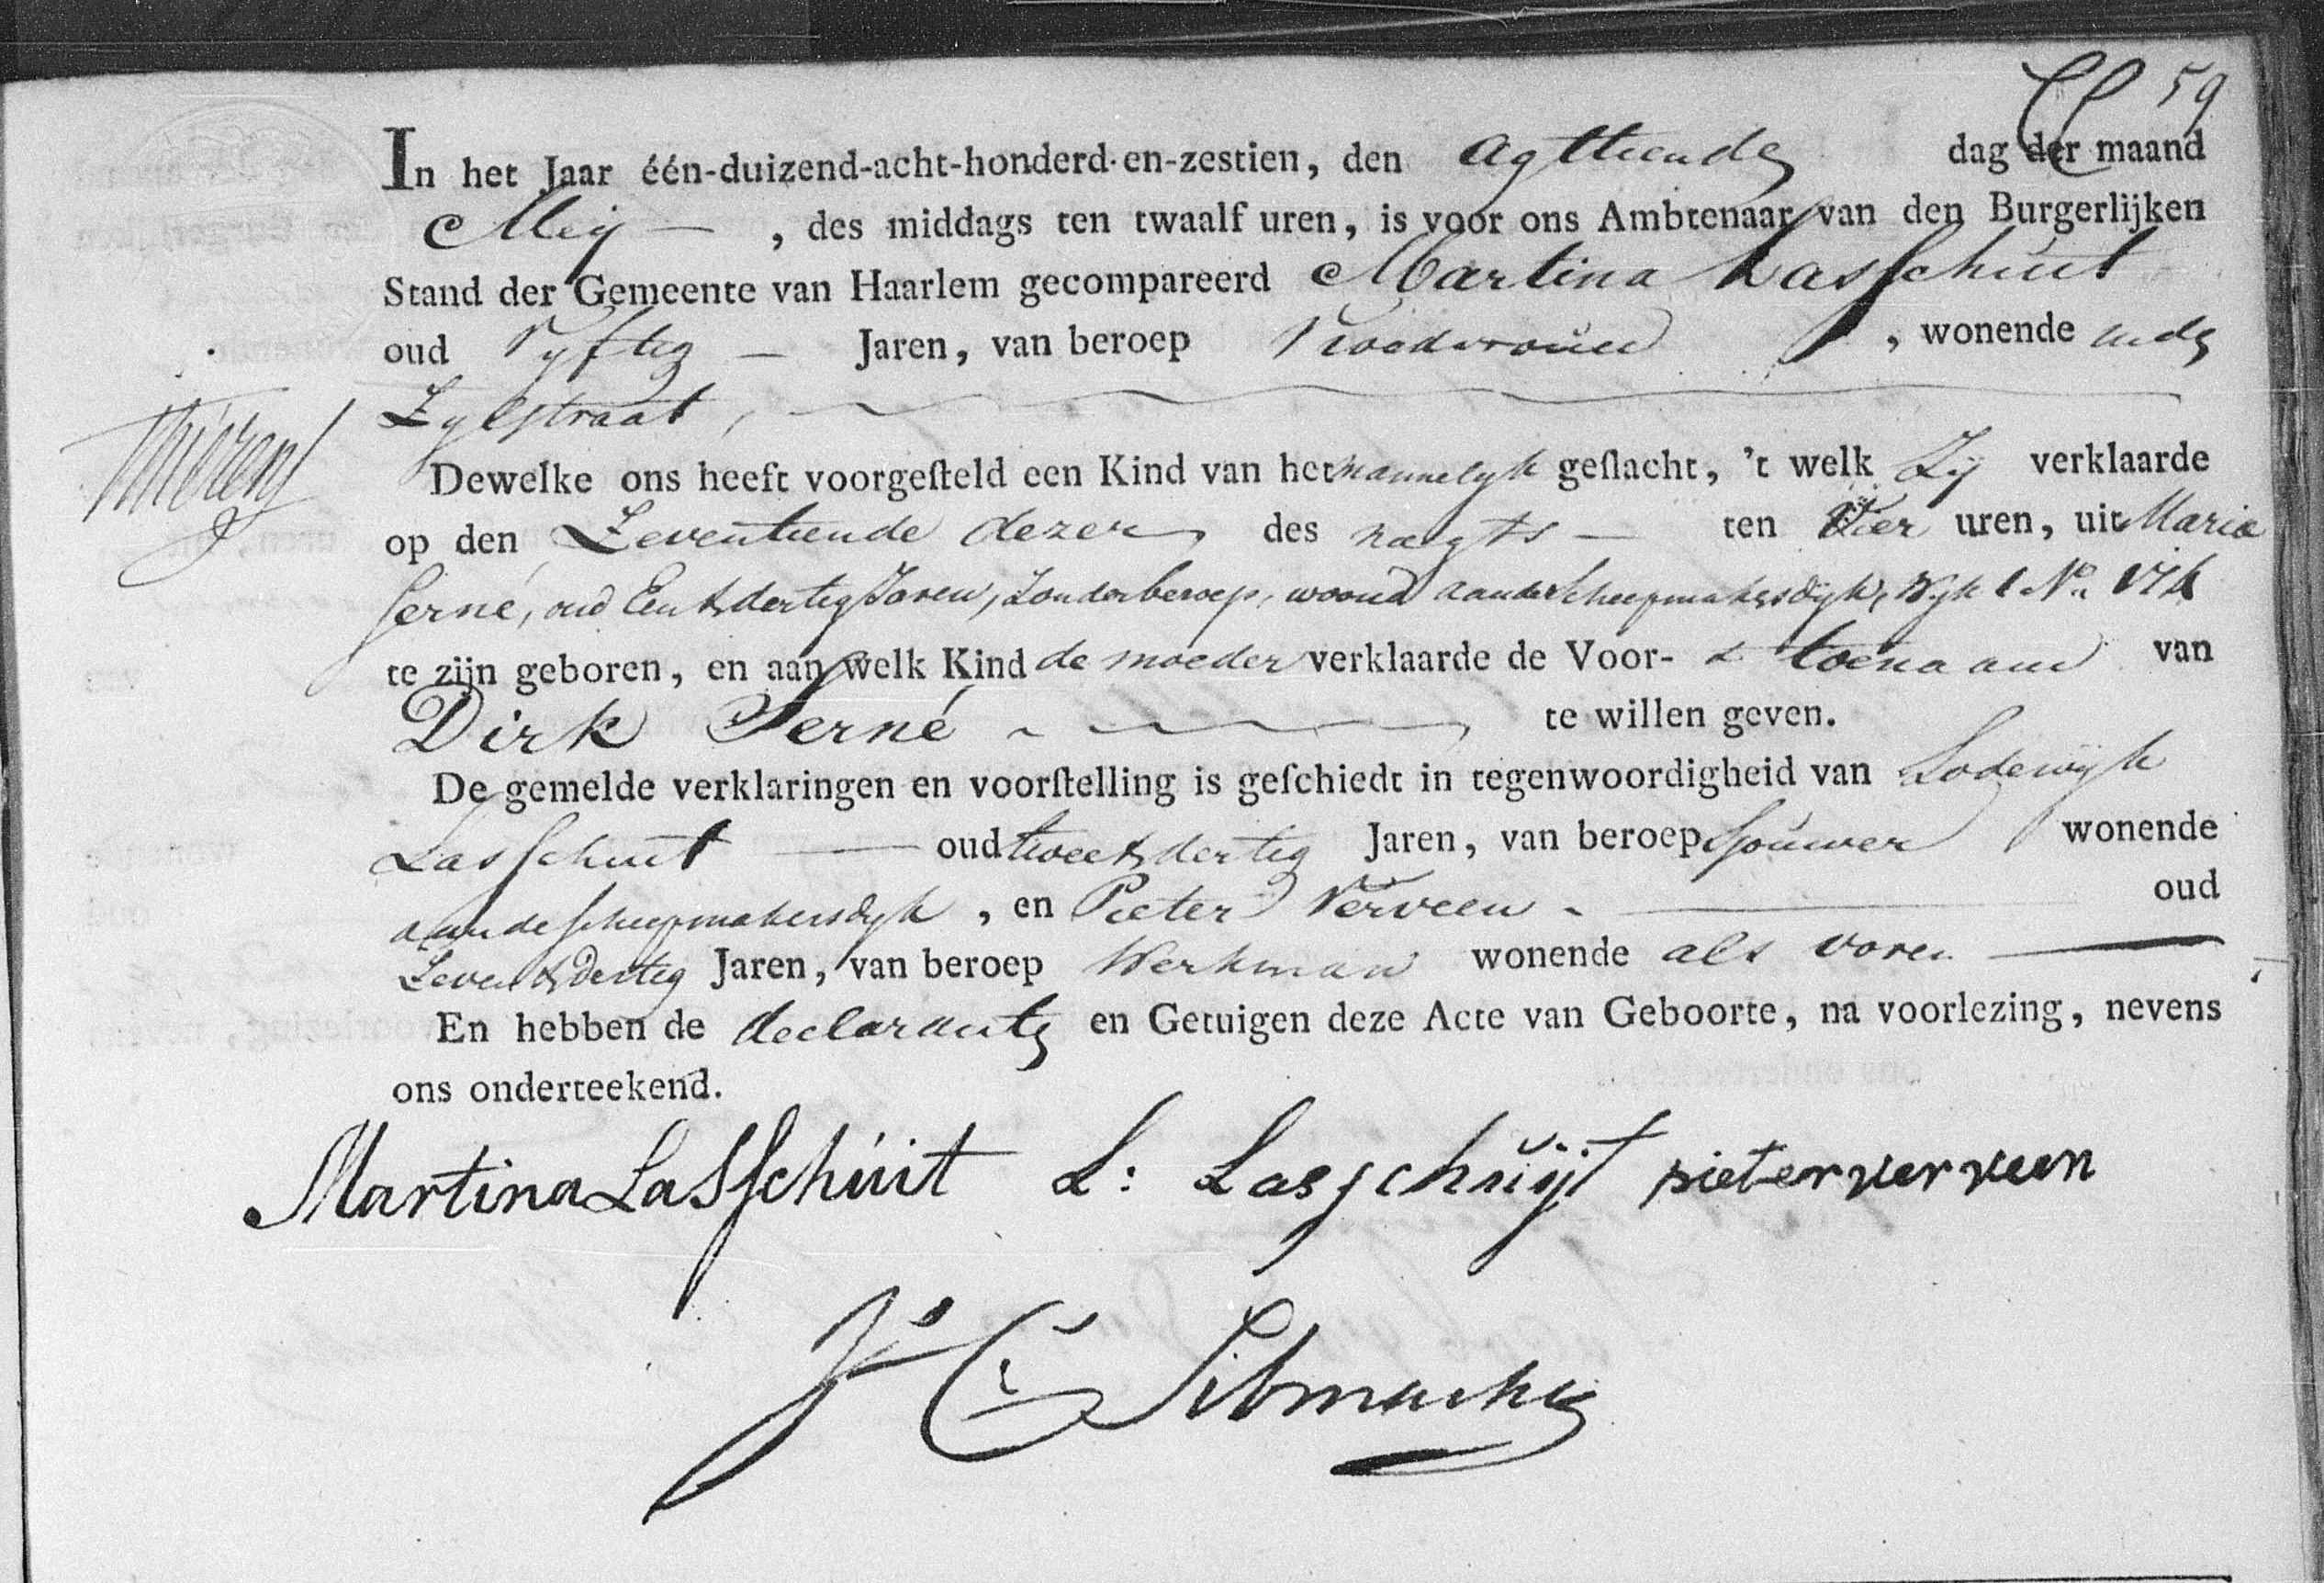 59
In het Jaar één-duizend-acht-honderd-en-zestien, den agttiende dag der maand
Meij — , des middags ten twaalf uren, is voor ons Ambtenaar van den Burgerlijken
Stand der Gemeente van Haarlem gecompareerd Martina Lasschuit
oud Vyftig — Jaren, van beroep Vroedvrouw , wonende in de
Zylstraat,
Thierens
Dewelke ons heeft voorgesteld een Kind van het mannelyk geslacht, 't welk Zij verklaarde
op den Zeventiende dezer des nagts — ten Vier uren, uit Maria
Serné, oud Een & dertig Jaren, Zonder beroep, woond aan de Scheepmakersdyk, Wyk 1 No.
te zijn geboren, en aan welk Kind de moeder verklaarde de Voor- & toenaam van
Dirk Serné te willen geven.
De gemelde verklaringen en voorstelling is geschiedt in tegenwoordigheid van Lodewyk
Lasschuit — oud twee & dertig Jaren, van beroep Sjouwer wonende
aan de scheepmakersdyk , en Pieter Verveen — oud
Zeven & Dertig Jaren, van beroep Werkman wonende als voren —
En hebben de declarante en Getuigen deze Acte van Geboorte, na voorlezing, nevens
ons onderteekend.
Martina Lasschuit L: Lasschuijt pieter verveen